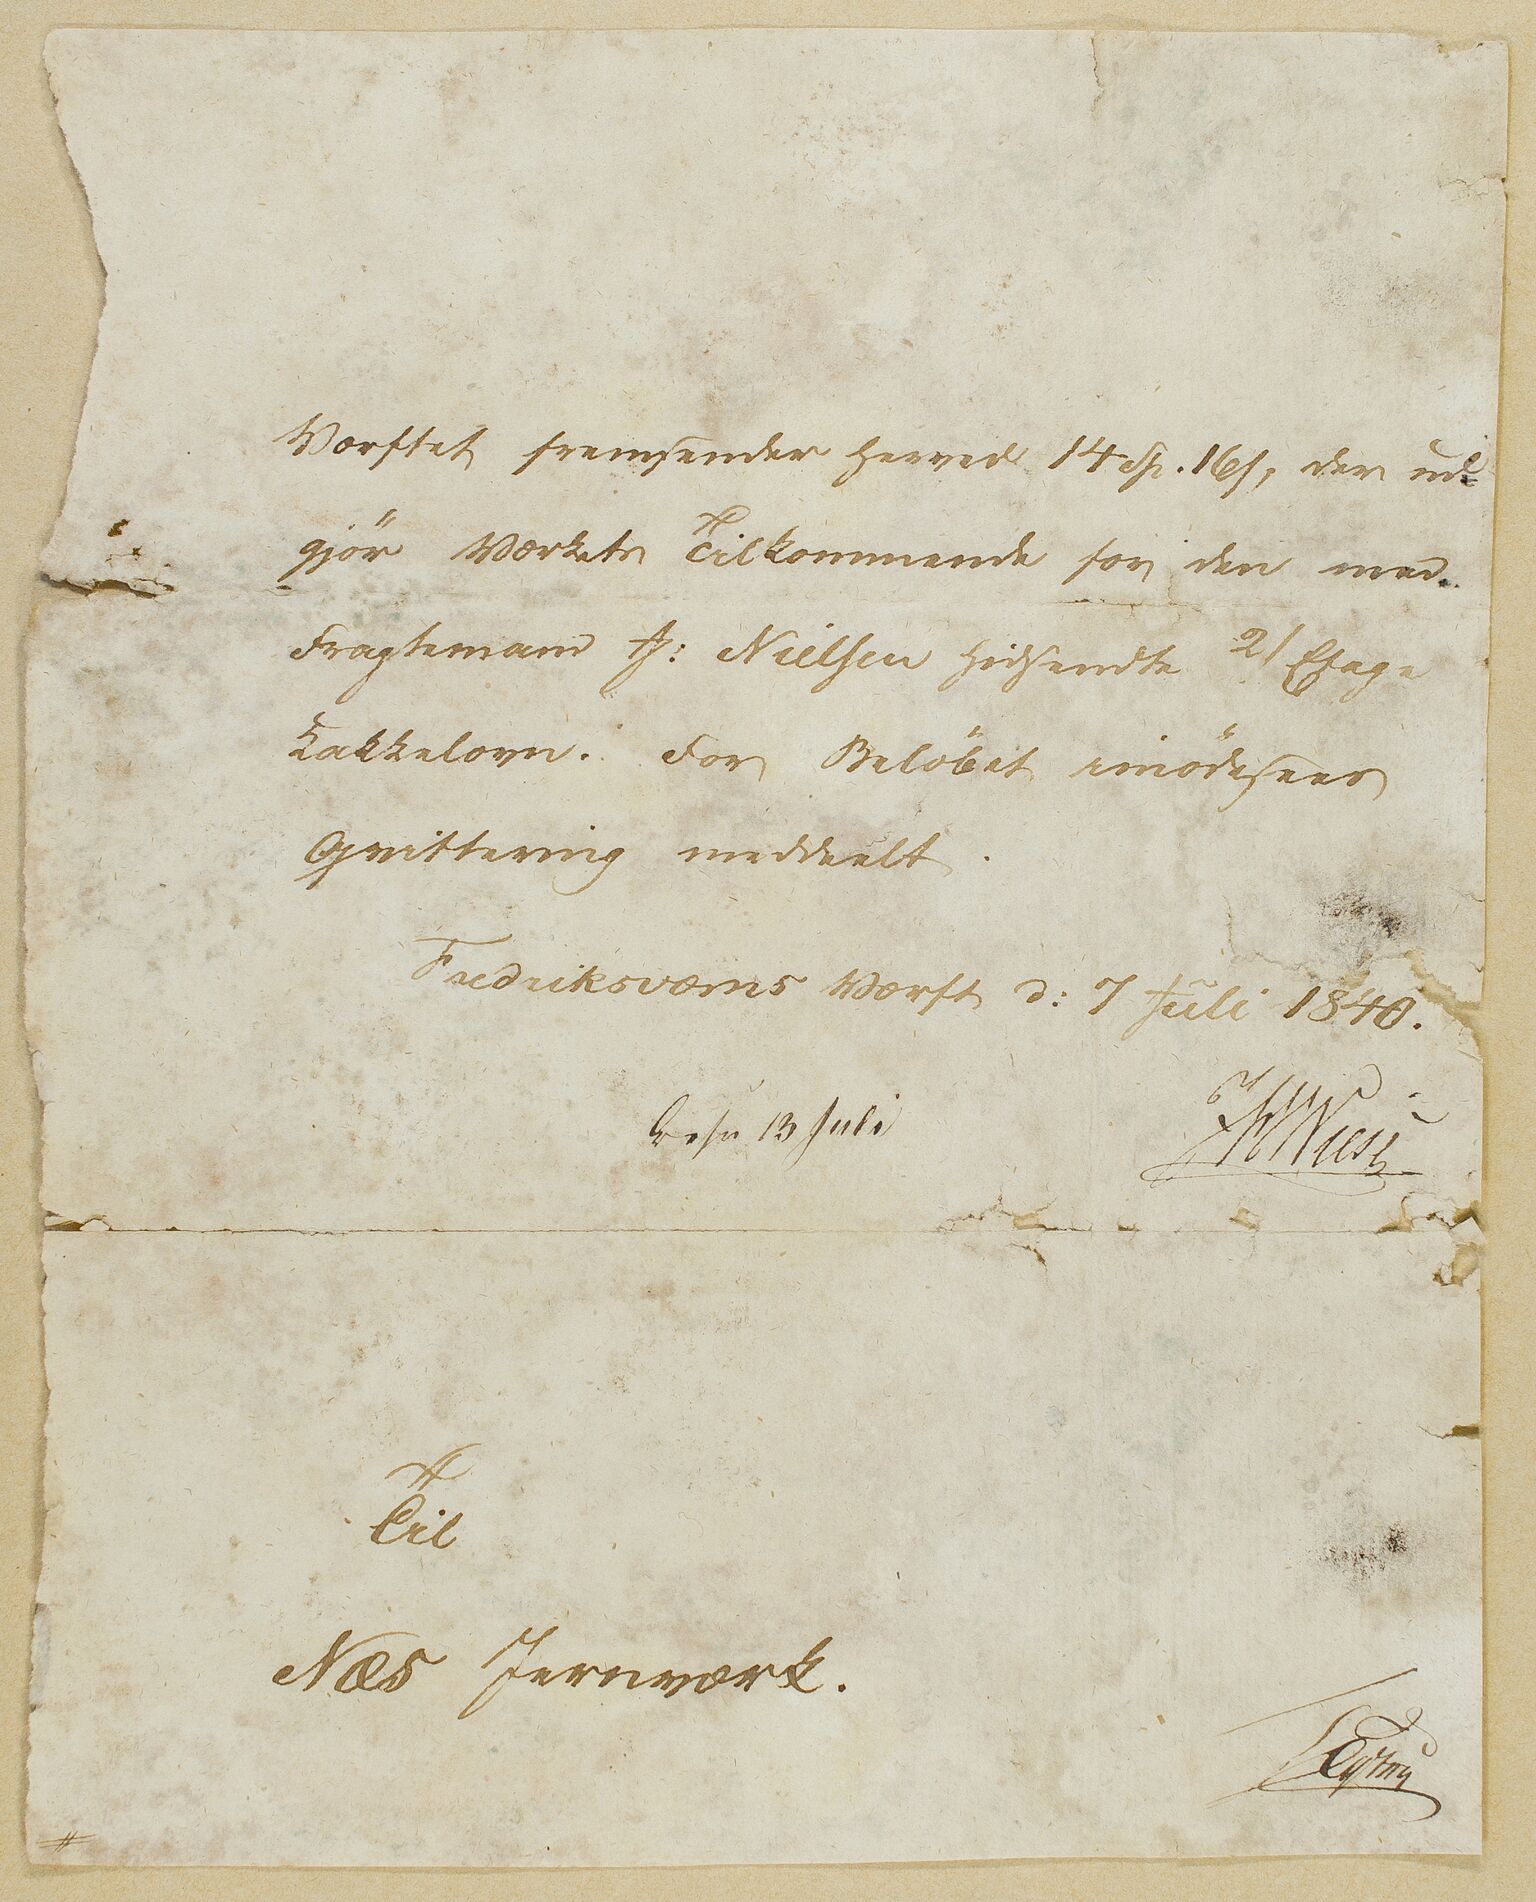 Værftet fremsender herved 14 Sp. 16 s, der ud-
gjör Værkets Tilkommende for den med
Fragtemand J: Nielsen hidsendte 2/ Etage
Kakkelovn. For Belöbet imödesees
Qvittering meddeelt.
Fredriksværns Værft d: 7 Juli 1840.
Besv 13 Juli
Til
Næs Jernværk.